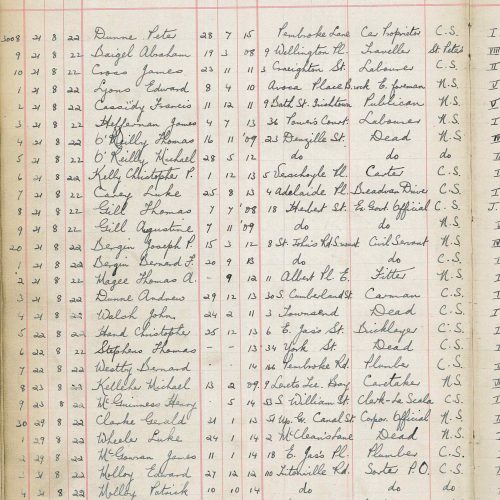 3008 21 8 22 Dunne Peter 28 7 15 Pembroke Lane Car Proprietor C.S. I
9 21 8 22 Baigel Abraham 19 3 08 9 Wellington Pl. Traveller St Peters VIII
10 21 8 22 Cross James 23 11 11 3 Creighton St. Labourer C.S. I
1 21 8 22 Lyons Edward 8 4 10 Avoca Place B'rock E. foreman N.S. V
2 21 8 22 Cassidy Francis 11 12 11 9 Bath St. Irishtown Publican N.S. V
3 21 8 22 Heffernan James 4 7 13 36 Power's Court Labourer N.S. I
4 21 8 22 O'Reilly Thomas 16 11 '09 23 Denzille St. Dead N.S.
5 21 8 22 O'Reilly Michael 28 5 12 do do do
6 21 8 22 Kelly Christopher P. 1 12 13 5 Pl. Carter C.S. I
7 21 8 22 Casey Luke 25 8 13 4 Adelaide Pl. C.S. I
8 21 8 22 Gill Thomas 7 7 '08 18 Herbert St. Ex Govt. Official C.S.
9 21 8 22 Gill Augustine 7 11 '09 do do N.S. I
20 21 8 22 Bergin Joseph P. 15 3 12 8 St. John's Rd S'mount Civil Servant N.S.
1 21 8 22 Bergin Bernard F. 20 9 13 do do C.S. I
2 21 8 22 Magee Thomas A. - 9 12 11 Albert Pl. E. Fitter N.S. I
3 21 8 22 Dunne Andrew 29 12 13 30 S. Cumberland St Carman C.S. I
4 21 8 22 Walsh John 24 2 11 3 Townsend Dead C.S. I
5 22 8 22 Hand Christopher 25 12 13 6 E. Jas's St. Bricklayer C.S. I
6 22 8 22 Stephens Thomas - - 13 34 York St. Dead C.S. I
7 22 8 22 Bernard 14 166 Pembroke Rd. Plumber C.S. I
8 23 8 22 Kelleher Michael 13 2 09 Caretaker N.S.
9 23 8 22 McGuinness Harry 5 14 53 S. William St. Clerk-La Scala C.S. I
30 29 8 22 Clarke Gerald 21 1 13 51 Up. Gr. Canal St Copor. Official N.S. I
1 29 8 22 Wheeler Luke 24 1 14 2 McCleans Lane Dead N.S. I
2 29 8 22 McGowran James 11 1 14 18 E. Jas's Pl. Plumber C.S. I
3 21 8 22 Molloy Edward 27 12 12 110 Titonville Rd. Sorter P.O. C.S. I
4 21 8 22 Molloy Patrick 10 10 14 do do do